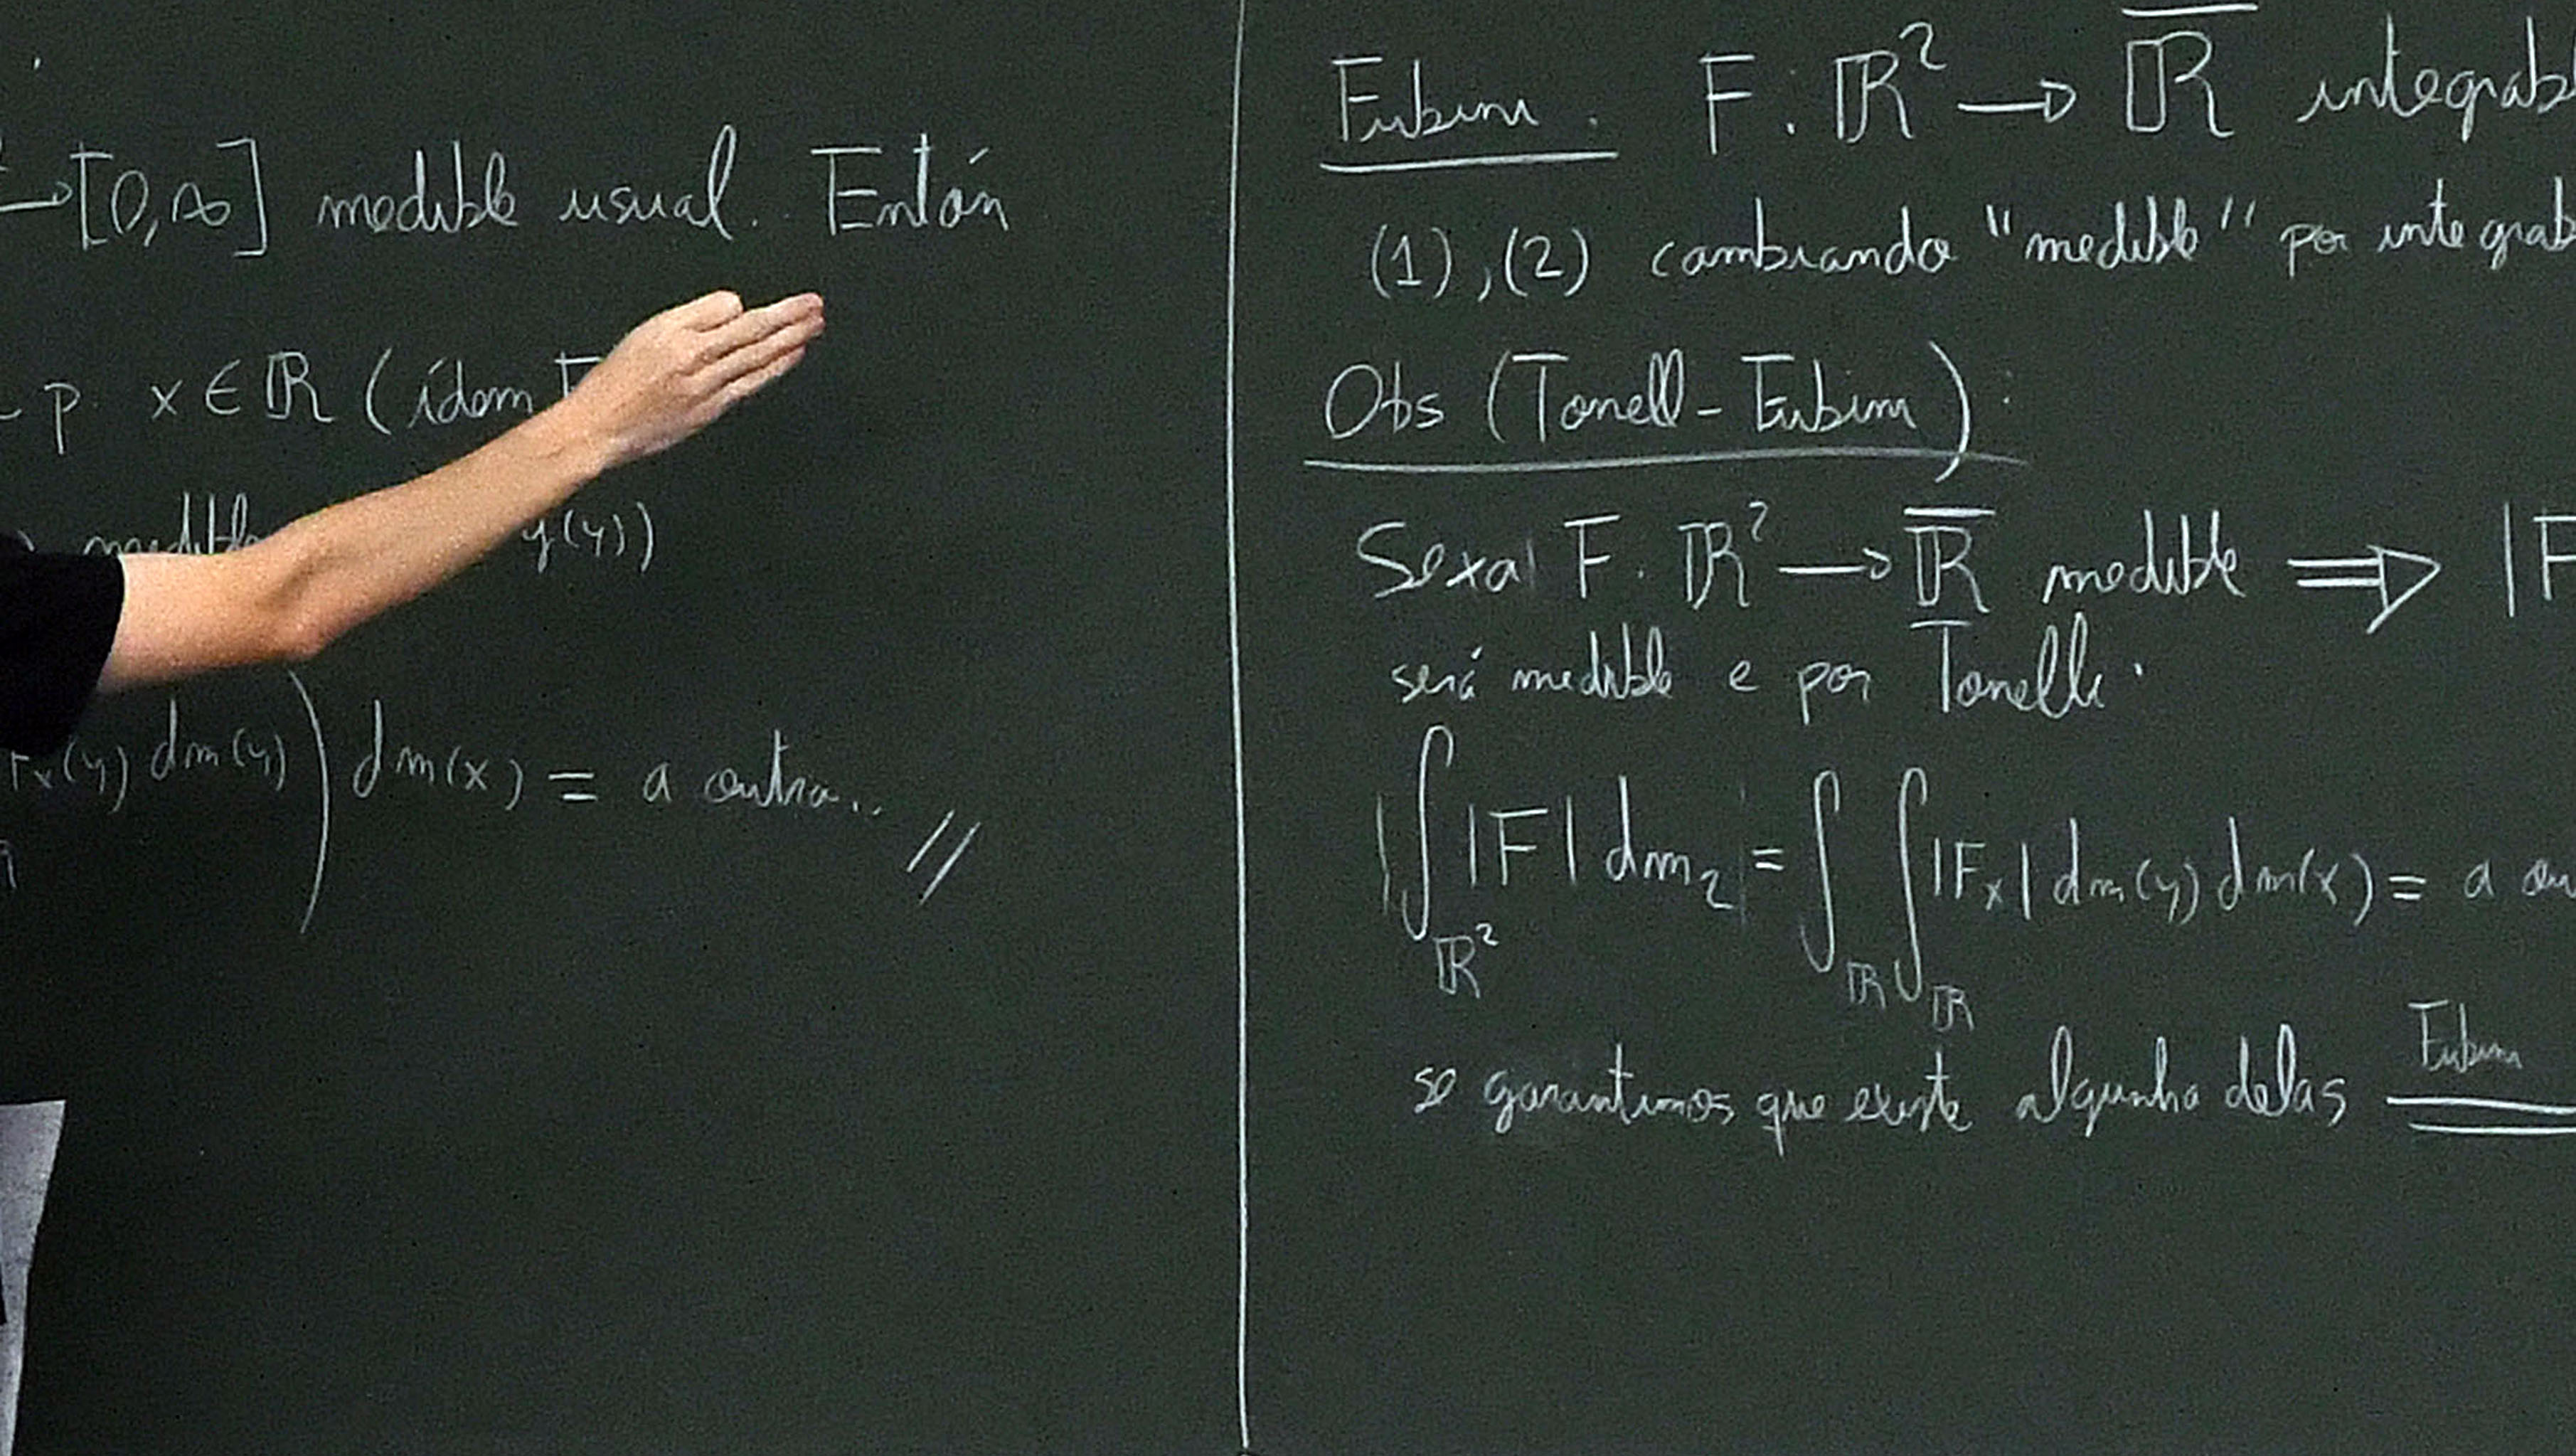 →[0,∞] medible usual. Entón
p. x ∈ ℝ (ídem F
medible y(y))
Fₓ(y) dm(y)) dm(x) = a outra.. //
Fubini. F: ℝ² → ℝ̅ integrab
(1), (2) cambiando "medible" por integrab
Obs (Tonell-Fubini):
Sexa F: ℝ² → ℝ̅ medible ⟹ |F
será medible e por Tonelli:
∫_ℝ² |F| dm₂ = ∫_ℝ ∫_ℝ |Fₓ| dm(y) dm(x) = a ou
se garantimos que existe algunha delas Fubini